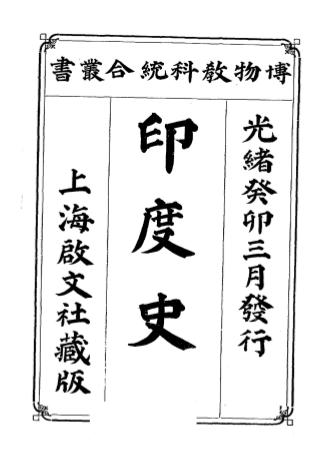 博物教科統合叢書
光緒癸卯三月發行
印度史
上海啟文社藏版